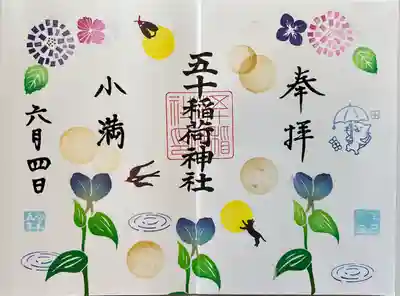 奉拝
五十稲荷神社
小満
六月四日